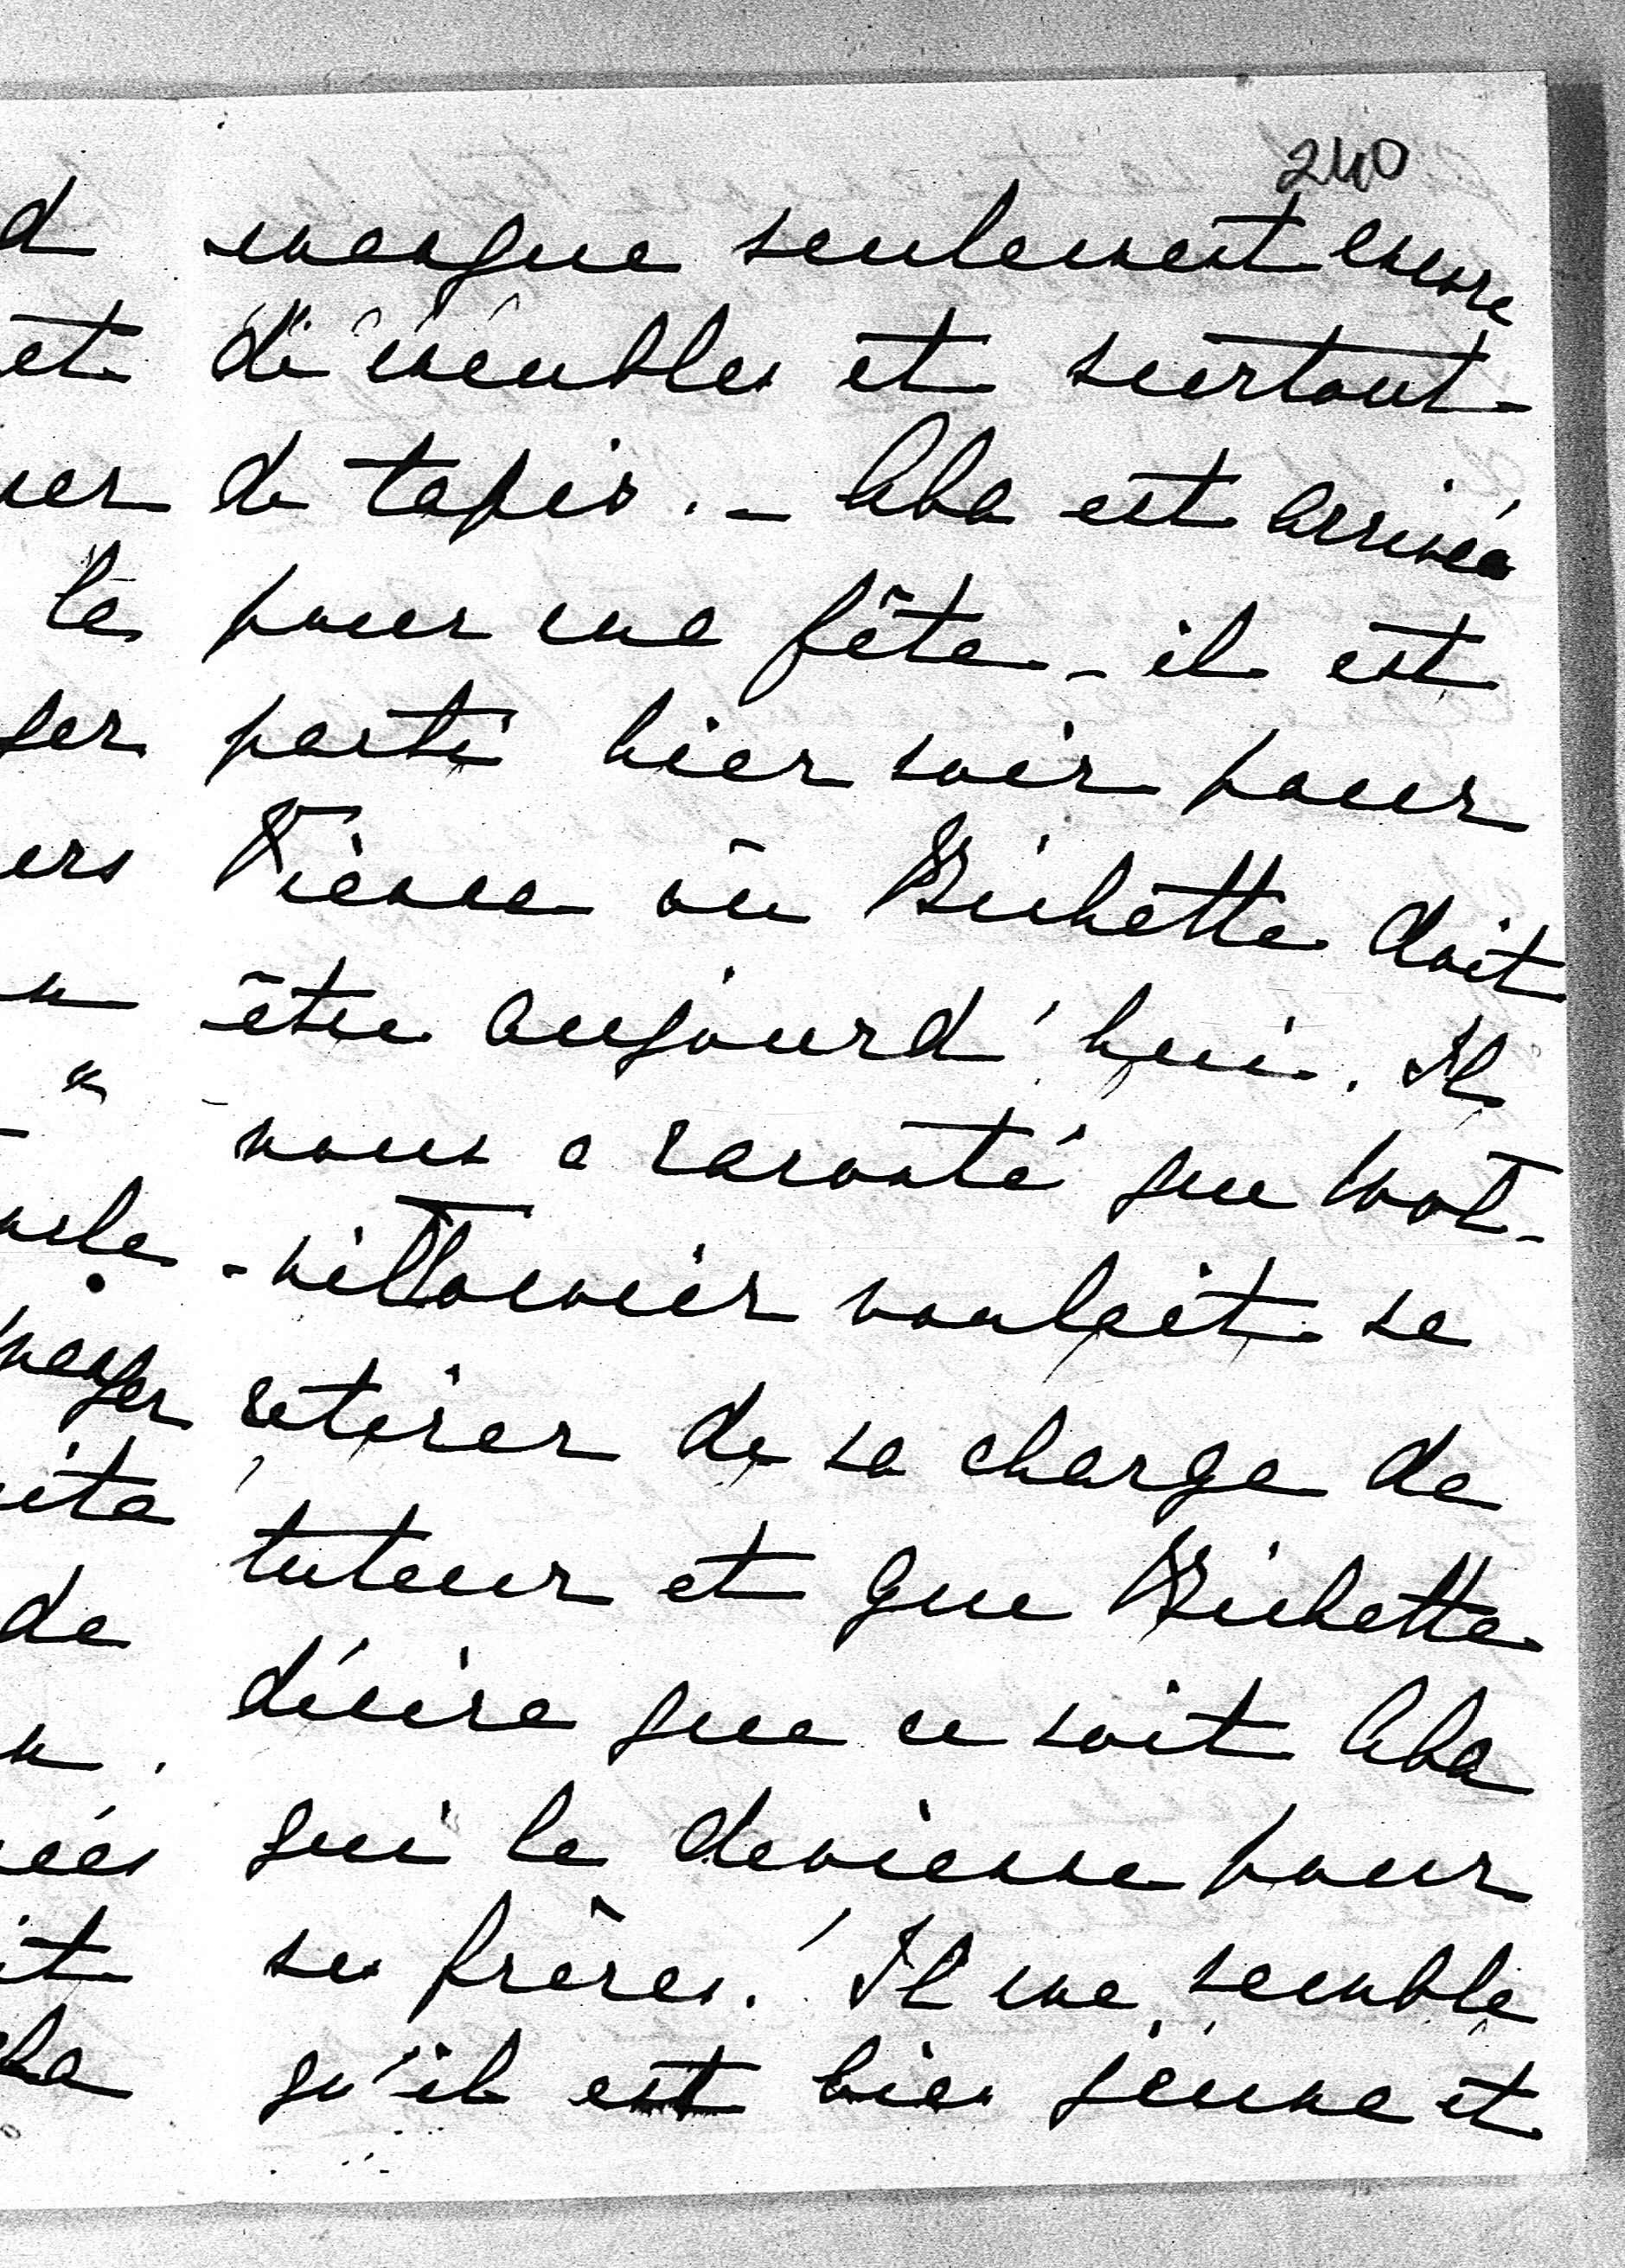 240
manque seulement encore
de meubles et surtout
de tapis. - Aba est arrivé
pour une fête - il est
parti hier soir pour
Vienne où Bichette doit
être aujourd'hui. Il
nous a raconté que Wol-
se
retirer de sa charge de
tuteur et que Bichette
désire que ce soit Aba
qui le devienne pour
ses frères. Il me semble
qu'il est bien jeune et